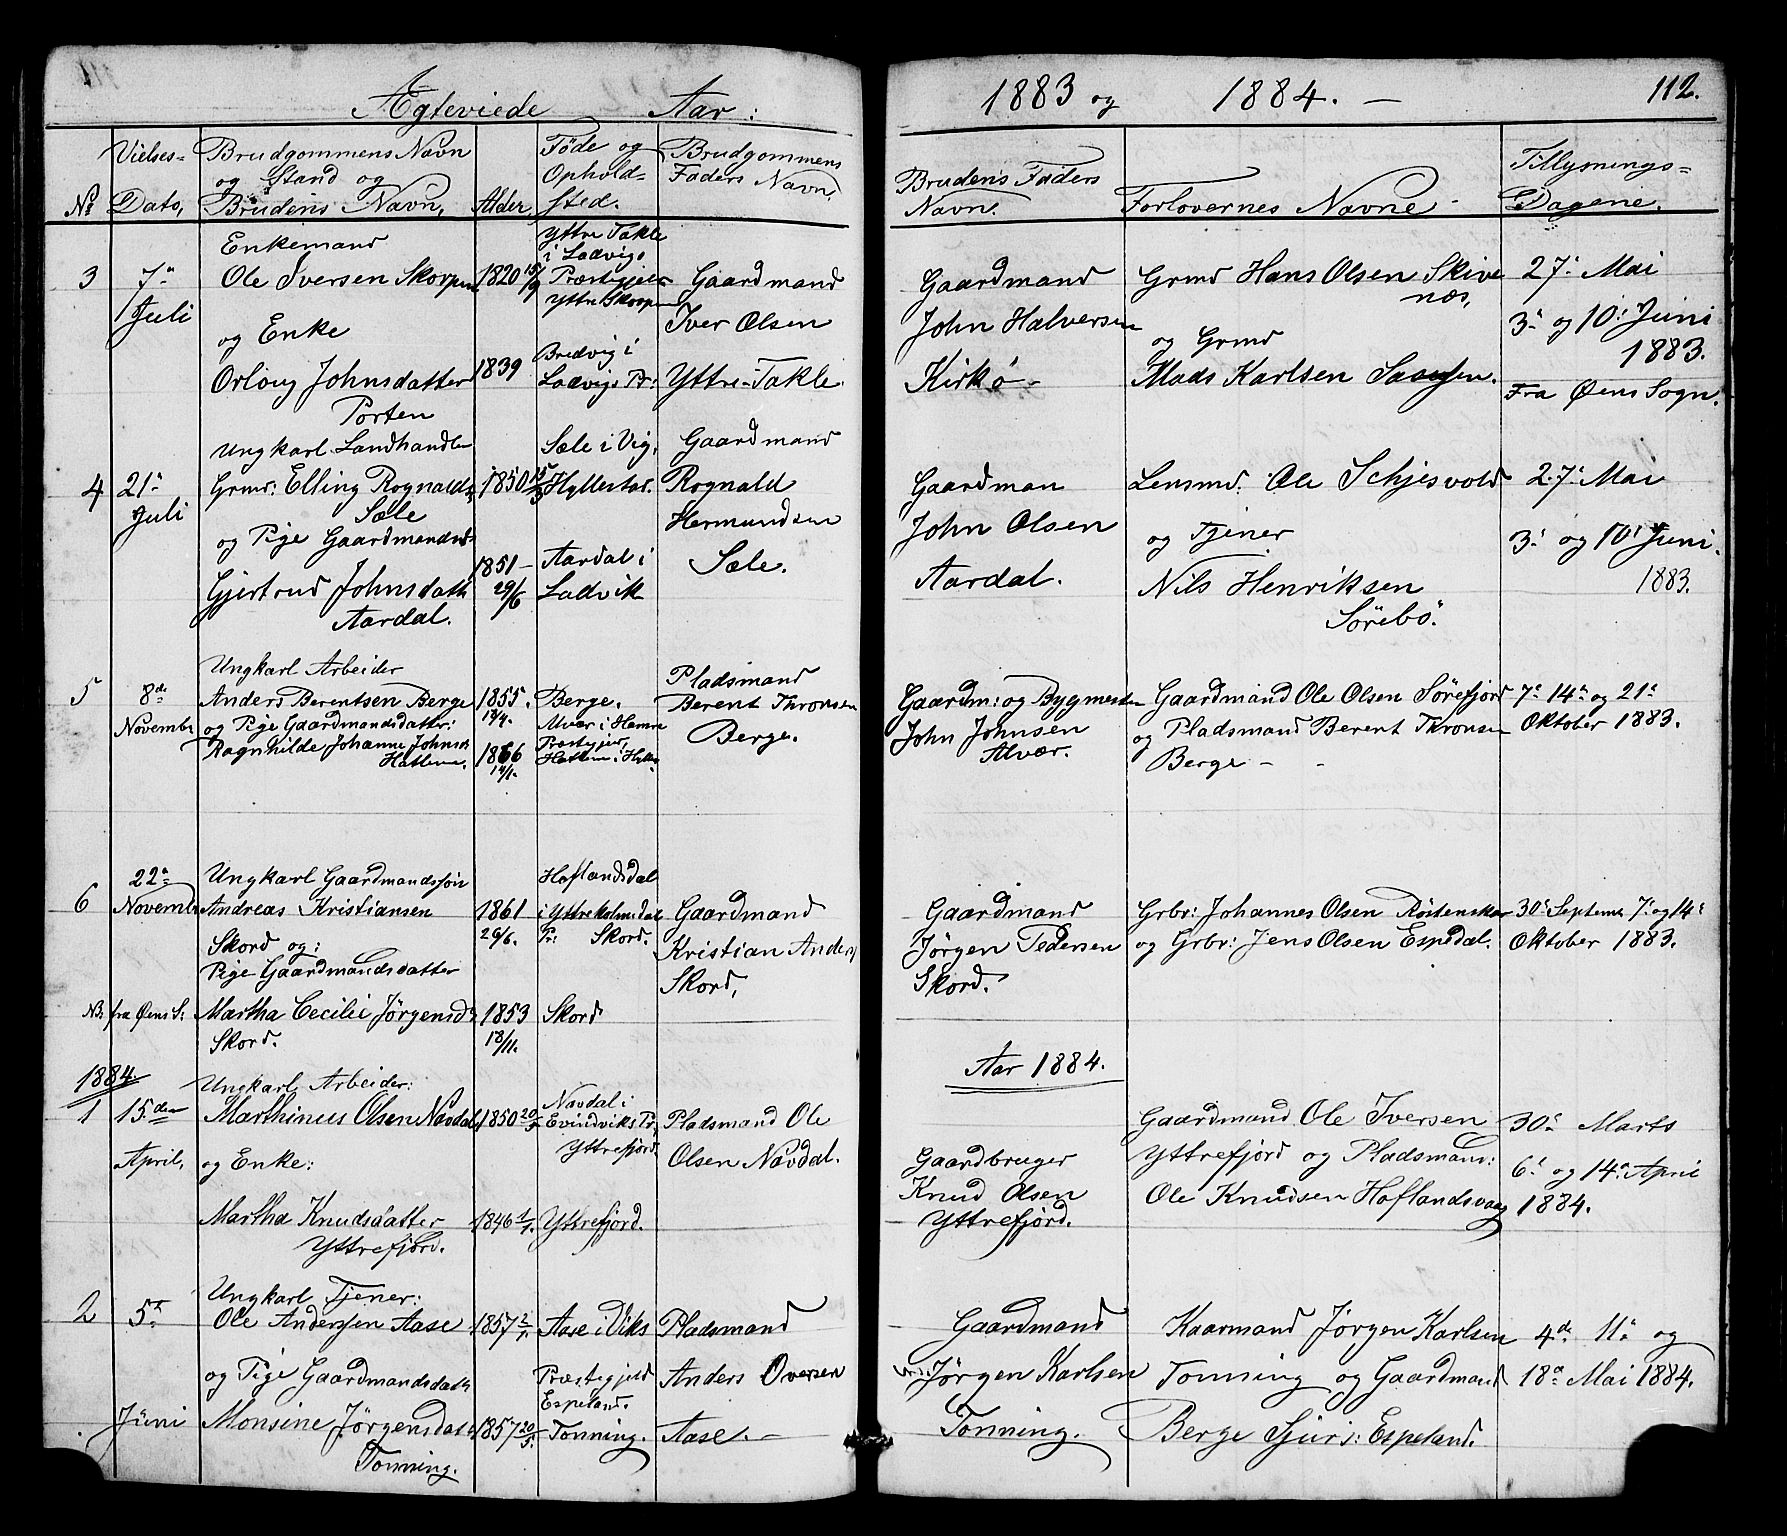 Ægteviede Aar: 1883 og 1884. — 112.
No
Vielses-
Dato,
Brudgommens Navn
og Stand og
Brudens Navn,
Alder
Föde og
Ophold-
sted.
Brudgommens
Faders Navn.
Brudens Faders
Navn.
Forlovernes Navne
Tillysnings-
Dagene.
3
7de
Juli
Enkemand
Ole Iversen Skorpen
og Enke
Orloug Johnsdatter
Porten
1820 15/9
1839
Yttre Takle
i Ladvigs
Præstegjeld
Yttre Skorpen
Bredvig i
Ladvigs Pr:
Gaardmand
Iver Olsen
Yttre-Takle
Gaardmand
John Halversen
Kirkö
Grmd Hans Olsen Skive
næs,
og Grmd
Mads Karlsen
27: Mai
3: og 10: Juni
1883.
Fra Øens Sogn.
4
21de
Juli
Ungkarl Landhandler
Grmd: Elling Rognalds
Sæle
og Pige Gaardmandsd
Gjertrud Johnsdatt
Aardal.
1850 15/3
1851 –
29/6
Sæle i Vig,
Hyllestad.
Aardal i
Ladvik
Gaardmand
Rognald
Hermundsen
Sæle.
Gaardman
John Olsen
Aardal.
Lensmd: Ole Schjesvold
og Tjener
Nils Henriksen
Sörebö.
27: Mai
3: og 10: Juni.
1883.
5
8de
Novembr
Ungkarl Arbeider
Anders Berentsen Berge
og Pige Gaardmandsdatter:
Ragnhilde Johanne Johnsd
Hatlem.
1855.
1866
14/1.
Berge.
Alvær i Hamre
Præstegjeld,
Hatlem i Hylle
Pladsmand
Berent Thronsen
Berge.
Gaardm: og Bygmester
John Johnsen
Alvær.
Gaardmand Ole Olsen Sörefjord
og Pladsmand Berent Thronsen
Berge –
7de 14de og 21de
Oktober 1883.
6
22de
Novembr
Ungkarl Gaardmandssön
Andreas Kristiansen
Skord og:
Pige Gaardmandsdatter
NB. fra Øens S:
Martha Cecilie Jörgensd
Skord.
1861
26/6.
1853
18/11.
Haflandsdal
i Yttreholmedal
Pr: Skord.
Skord
Gaardmand
Kristian Anders
Skord,
Gaardmand
Jörgen Pedersen
Skord.
Grbr: Johannes Olsen Röstenskar
og Grbr: Jens Olsen Espedal.
30: Septemr 7: og 14:
Oktober 1883.
Aar 1884.
1884.
1
15den
April,
Ungkarl Arbeider:
Marthinus Olsen Navdal
og Enke:
Martha Knudsdatter
Yttrefjord.
1850 20/5
1846 1/1.
Navdal i
Evindviks Pr,
Yttrefjord
Yttrefjord.
Pladsmand Ole
Olsen Navdal.
Gaardbruger
Knud Olsen
Yttrefjord.
Gaardmand Ole Iversen
Yttrefjord og Pladsmand:
Ole Knudsen Haflandsvaag
30de Marts
6: og 14de April
1884.
2
5te
Juni
Ungkarl Tjener:
Ole Anderssen Aase
og Pige Gaardmandsdatt
Monsine Jörgensdatt
Tonning.
1857 2/1.
1857 20/5.
Aase i Viks
Præstegjeld
Espeland.
Tonning.
Pladsmand
Anders Oversen
Aase. –
Gaardmand
Jörgen Karlsen
Tonning.
Kaarmand Jörgen Karlsen
Tonning og Gaardmand
Berge Sjurs: Espeland.
4de 11te og
18de Mai 1884.